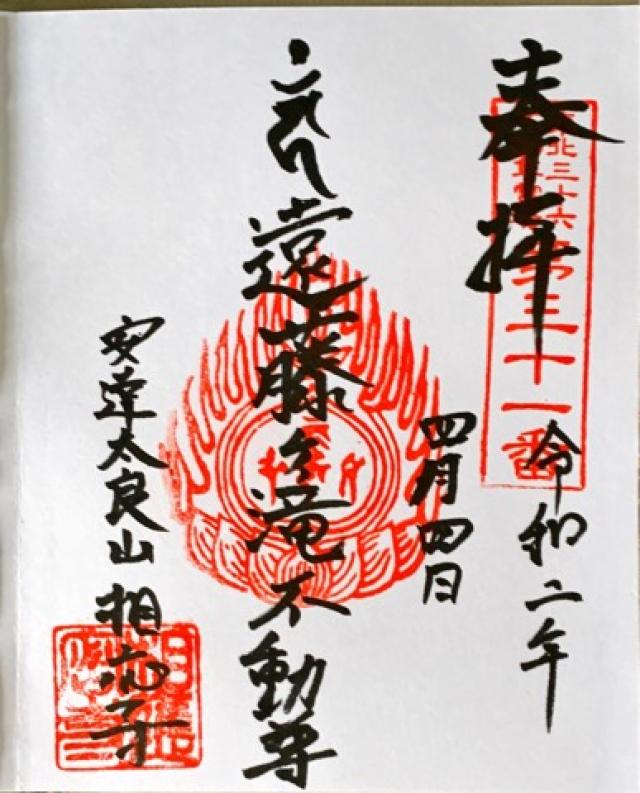 奉拝
三十六
第三十一番
令和二年
四月四日
遠藤ヶ滝不動尊
安達太良山 相応寺